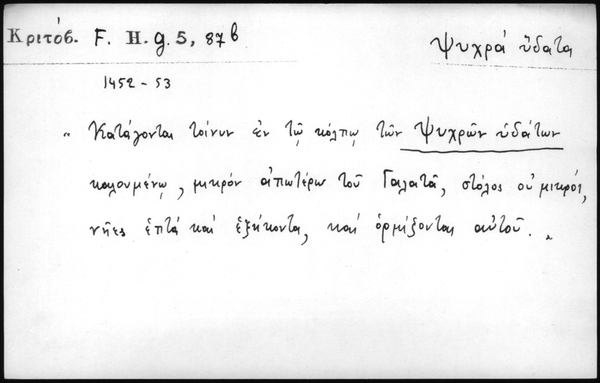 Κριτόβ. F. H. g. 5, 87b
Ψυχρά ὕδατα
1452 - 53
„ Κατάγονται τοίνυν ἐν τῷ κόλπῳ τῶν Ψυχρῶν ὑδάτων
καλουμένῳ, μικρόν ἀπωτέρω τοῦ Γαλατᾶ, στόλος οὐ μικρός,
νῆες ἑπτά καί ἑξήκοντα, καί ὁρμίζονται αὐτοῦ. „